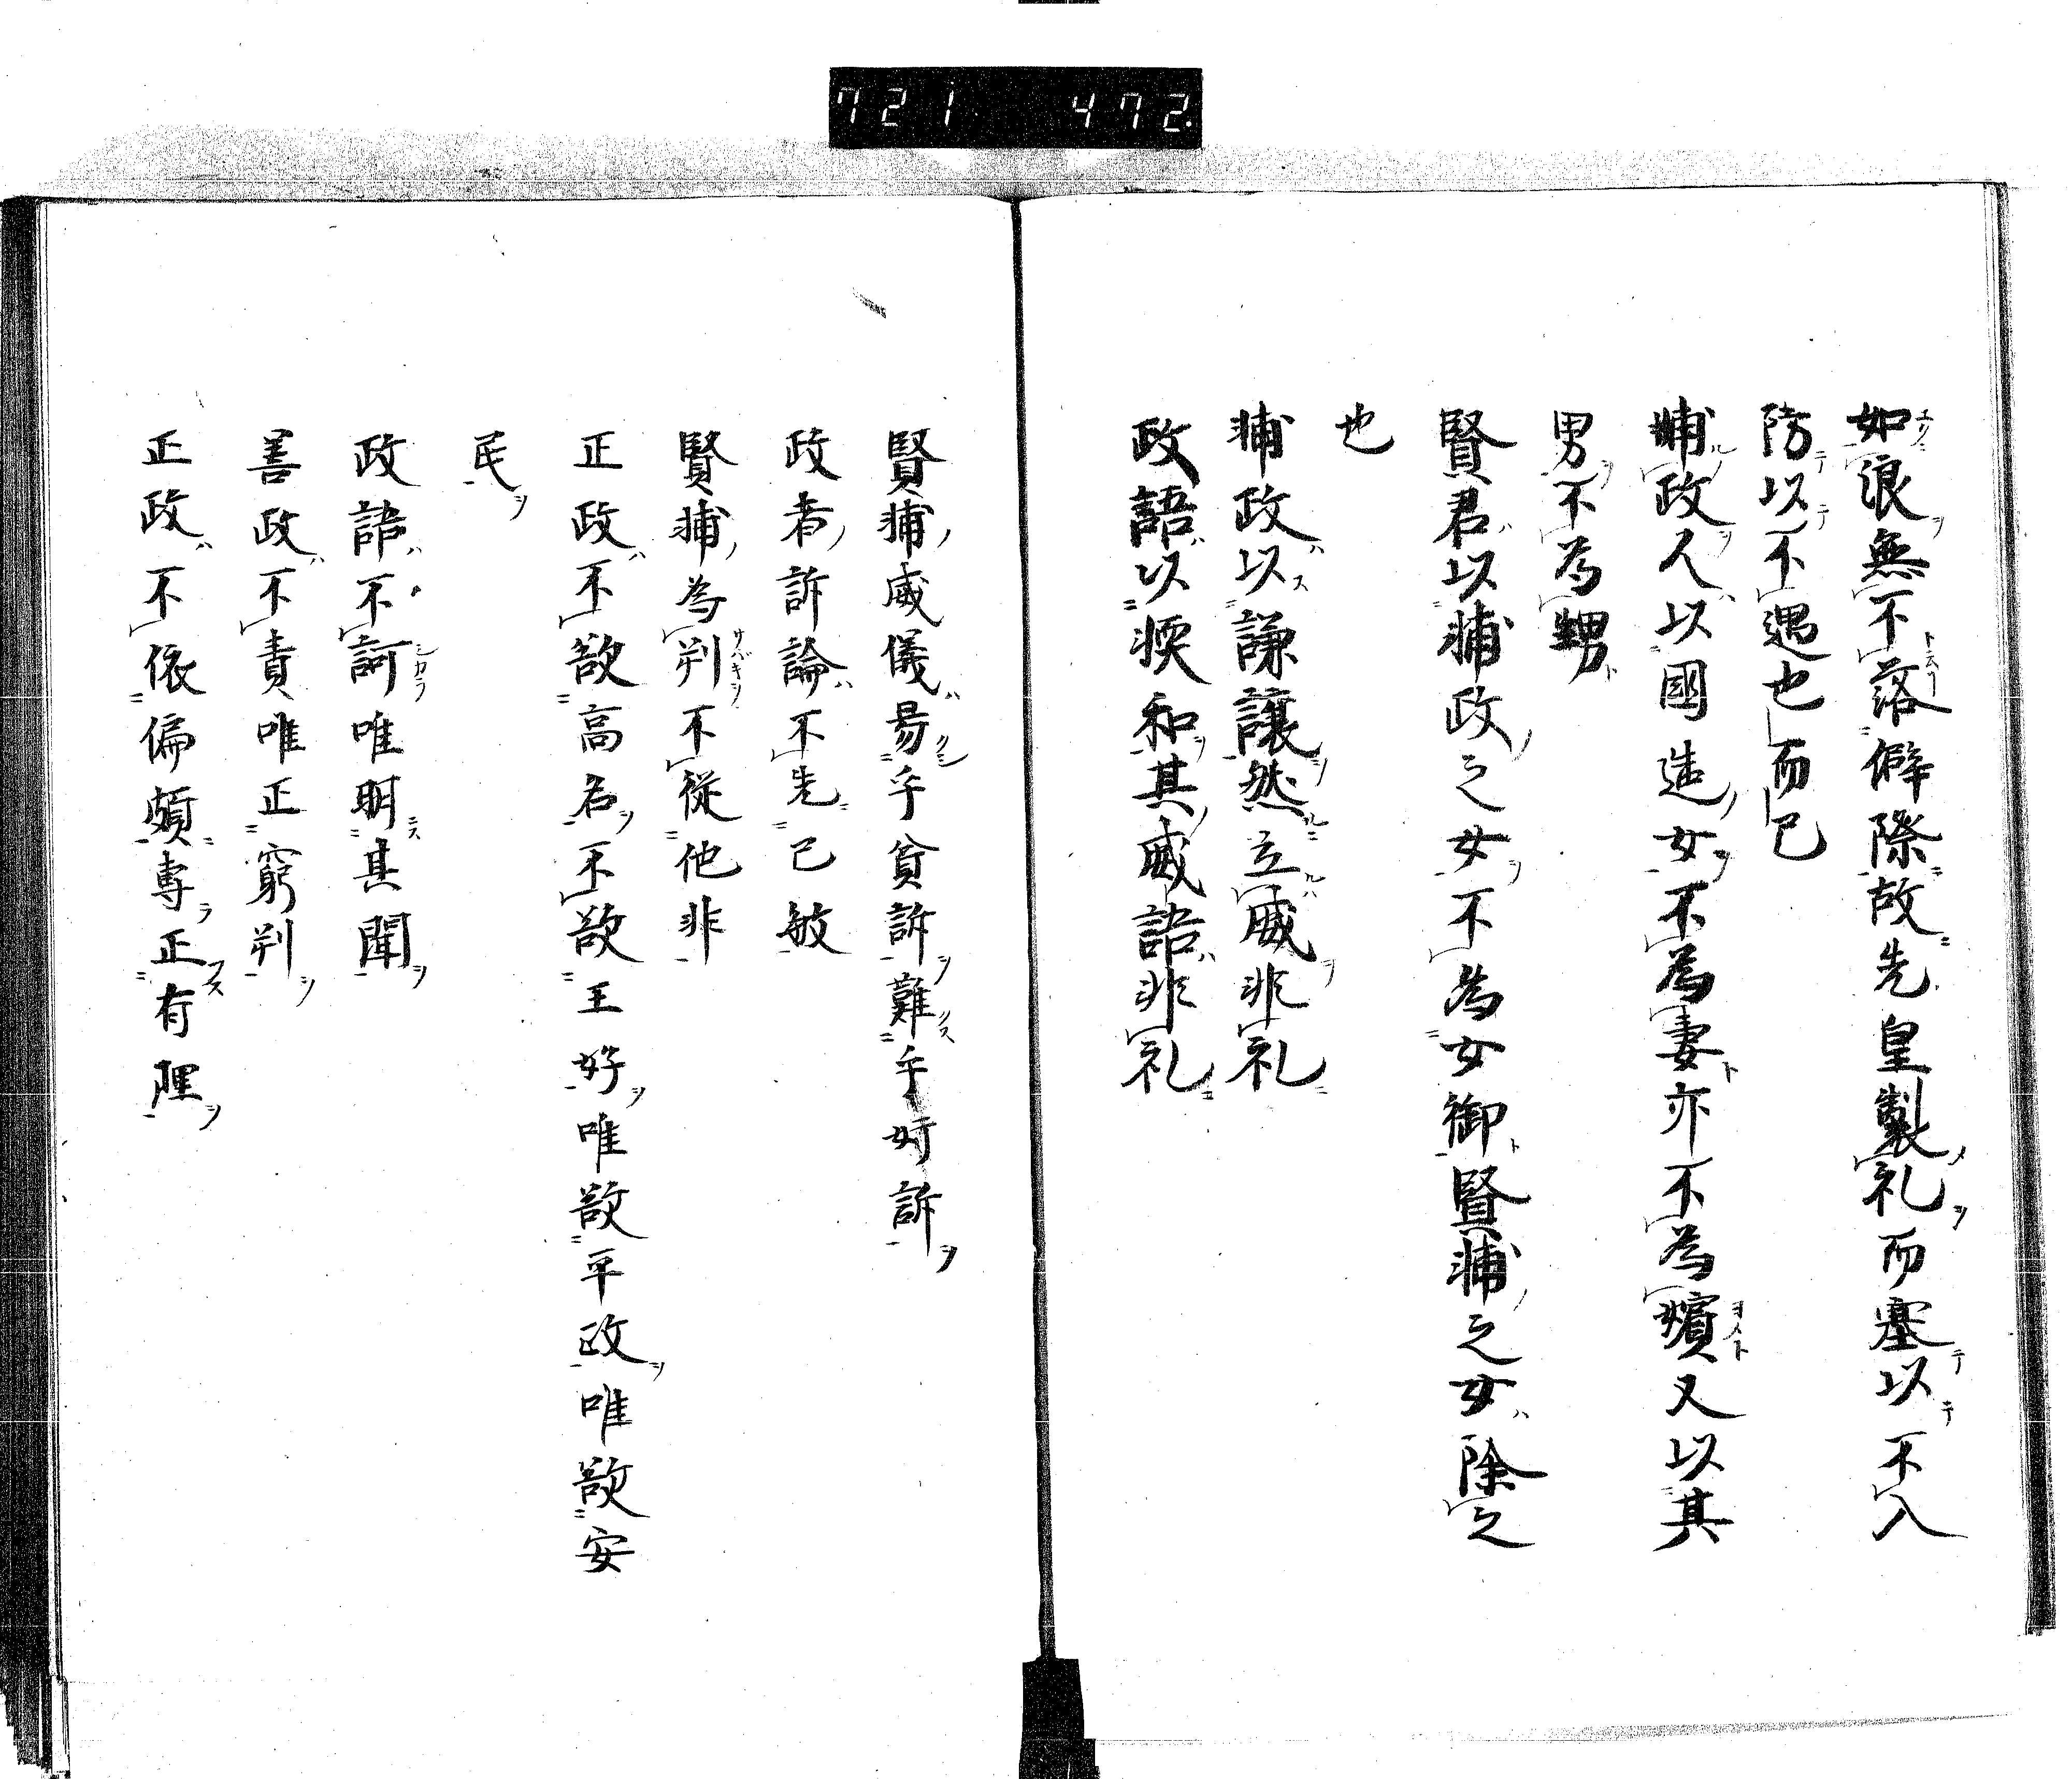 721 472
如浪無不落僻際故先皇製礼而塞以不入
防以不遇也而已
輔政人以國造女不為妻亦不為嬪又以其
男不為甥
賢君以輔政之女不為女御賢輔之女除之
也
輔政以謙讓然立威非礼
政語以渜和其威語非礼
賢輔威儀易乎貧訴難乎奸訴
政者訴論不先己敏
賢輔為判不從他非
正政不欲高名不欲王好唯欲平政唯欲安
民
政語不訶唯明其聞
善政不責唯正窮判
正政不依偏頗專正有理